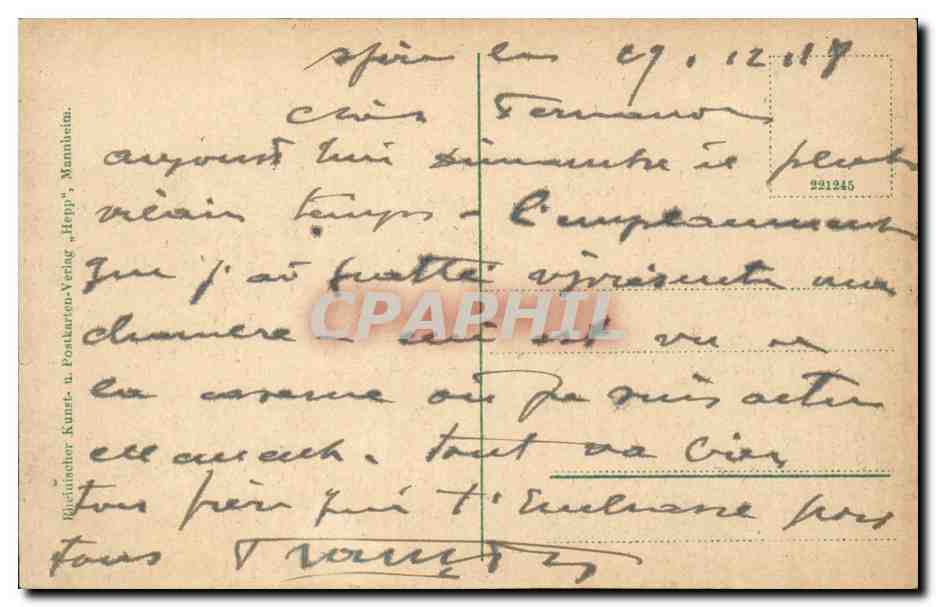 le 29.12.18
Cher Fernand
aujourd'hui dimanche il pleut
vilain temps - l'emplacement
que j'ai frotté représente ma
chambre - qui est vu de
la caserne où je suis actu
ellement. tout va bien
ton frère qui t'embrasse pour
tous
221245
Rheinischer Kunst- u. Postkarten-Verlag „Hepp", Mannheim.
CPAPHIL